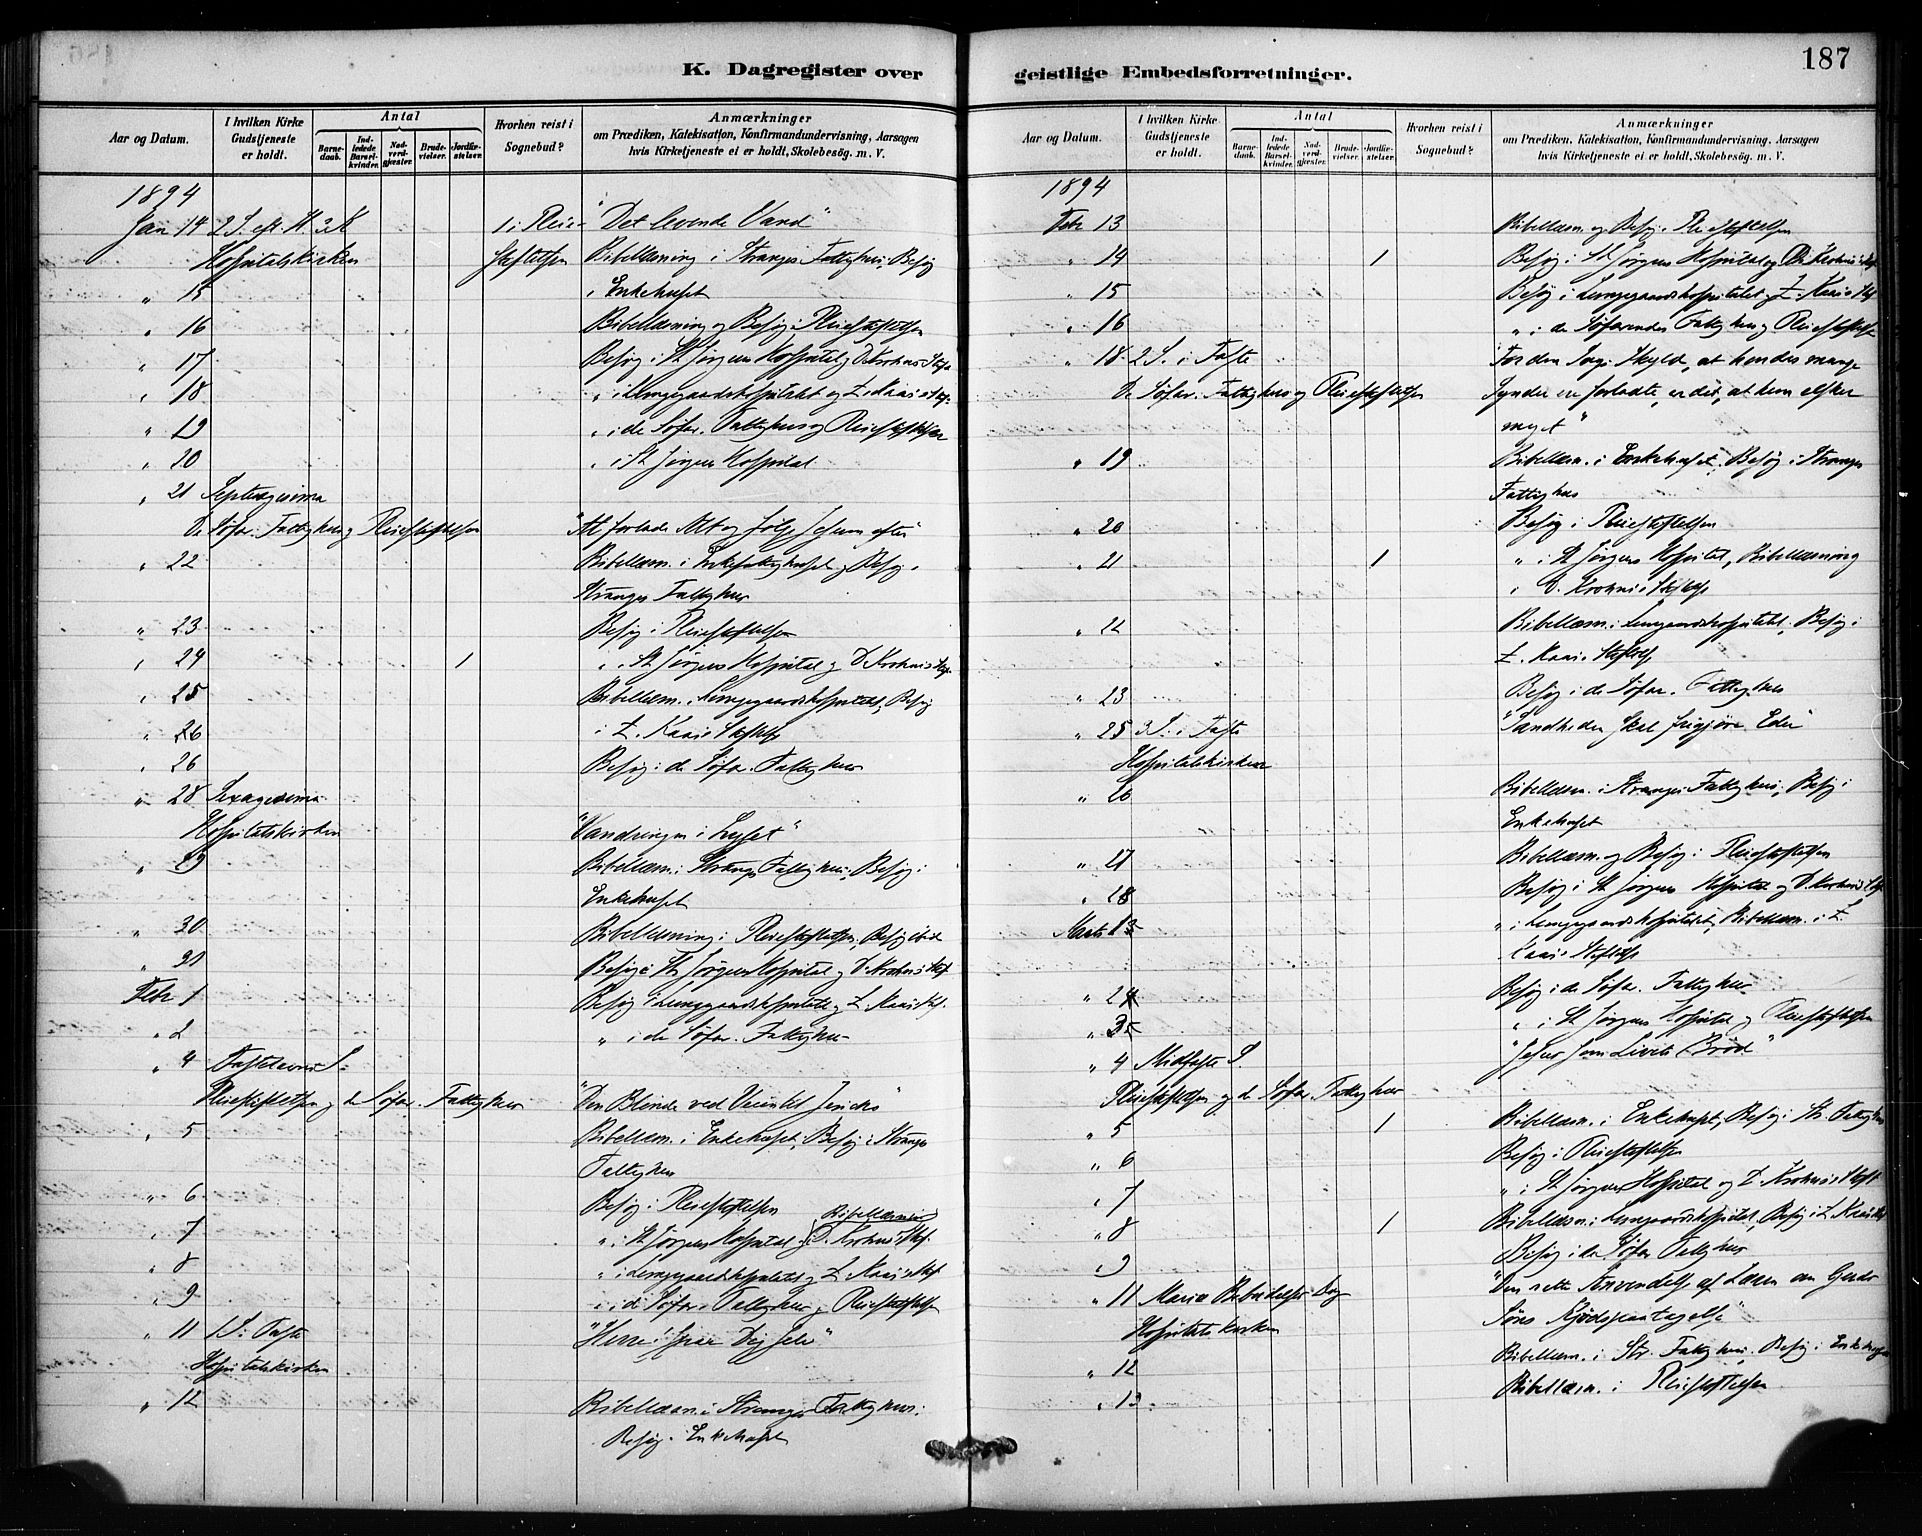 187
K. Dagregister over geistlige Embedsforretninger.
Aar og Datum.
I hvilken Kirke Gudstjeneste er holdt.
Antal
Barnedaab.
Indledede Barselkvinder.
Nadverdgjester.
Brudevielser.
Jordfæstelser.
Hvorhen reist i Sognebud?
Anmærkninger
om Prædiken, Katekisation, Konfirmandundervisning, Aarsagen
hvis Kirketjeneste ei er holdt, Skolebesög. m. V.
1894
Jan 14 2 S. eft. H. 3 K 1 i Pleie- "Det levende Vand"
Hospitalskirken stiftelsen Bibellæsning i Stranges Fattighus, Besøg
" 15 i Enkehuset
" 16 Bibellæsning og Besøg i Pleiestiftelsen
" 17 Besøg i St Jørgens Hospital og D. Krohns Stift
" 18 " i Lungegaardshospitalet og Z. Kaas's Stift.
" 19 " i de Søfar. Fattighus og Pleiestiftelsen
" 20 " i St Jørgens Hospital
" 21 Septuagesima
De Søfar. Fattighus og Pleiestiftelsen "At forlade Alt og følge Jesum efter"
" 22 Bibellæsn. i Enkefattighuset og Besøg i
Stranges Fattighus
" 23 Besøg i Pleiestiftelsen
" 24 1 " i St Jørgens Hospital og D. Krohns Stift.
" 25 Bibellæsn. i Lungegaardshospitalet, Besøg
" 26 i Z. Kaas's Stiftelse
" 26 Besøg i de Søfar. Fattighus
" 28 Sexagesima
Hospitalskirken "Vandringen i Lyset"
" 29 Bibellæsn. i Stranges Fattighus, Besøg i
Enkehuset
" 30 Bibellæsning i Pleiestiftelsen, Besøg ibid
" 31 Besøg i St Jørgens Hospital og D. Krohns Stift.
Febr 1 Besøg i Lungegaardshospitalet og Z. Kaas Stif.
" 2 " i de Søfar. Fattighus
" 4 Fastelavns S.
Pleiestiftelsen og de Søfar. Fattighus "Den Blinde ved Veien til Jericho"
" 5 Bibellæsn. i Enkehuset, Besøg i Stranges
Fattighus
" 6 Besøg i Pleiestiftelsen
Bibellæsning
" 7 " i St Jørgens Hospital og D. Krohns Stif.
" 8 " i Lungegaardshospitalet og Z. Kaas's Stif.
" 9 " i de Søfar. Fattighus og Pleiestiftelsen
" 11 1 S. i Faste "Herre! spar Dig selv"
Hospitalskirken
" 12 Bibellæsn. i Stranges Fattighus.
Besøg i Enkehuset
Aar og Datum.
I hvilken Kirke Gudstjeneste er holdt.
Antal
Barnedaab.
Indledede Barselkvinder.
Nadverdgjester.
Brudevielser.
Jordfæstelser.
Hvorhen reist i Sognebud?
Anmærkninger
om Prædiken, Katekisation, Konfirmandundervisning, Aarsagen
hvis Kirketjeneste ei er holdt, Skolebesög. m. V.
1894
Febr 13 Bibellæsn. og Besøg i Pleiestiftelsen
" 14 1 Besøg i St Jørgens Hospital og D. Krohns Stif.
" 15 Besøg i Lungegaardshospitalet, Z. Kaas's Stif
" 16 " i de Søfarendes Fattighus og Pleiestiftelse
" 18 2 S. i Faste For den Sags Skyld, at hendes mange
De Søfar. Fattighus og Pleiestiftelsen Synder ere forladte, er det, at hun elsker
meget"
" 19 Bibellæsn. i Enkehuset, Besøg i Stranges
Fattighus
" 20 Besøg i Pleiestiftelsen
" 21 1 " i St Jørgens Hospital, Bibellæsning
i D. Krohns Stiftelse
" 22 Bibellæsn. i Lungegaardshospitalet, Besøg i
Z. Kaas's Stiftelse
" 23 Besøg i de Søfar. Fattighus
" 25 3 S. i Faste "Sandheden skal frigjøre Eder"
Hospitalskirken
" 26 Bibellæsn. i Stranges Fattighus, Besøg i
Enkehuset
" 27 Bibellæsn. og Besøg i Pleiestiftelsen
" 28 Besøg i St Jørgens Hospital og D. Krohns Stif.
Marts 1 " i Lungegaardshospitalet, Bibellæsn. i Z.
Kaas's Stiftelse
" 2 Besøg i de Søfar. Fattighus
" 3 " i St Jørgens Hospital og Pleiestiftelsen
" 4 Midfaste S. "Jesus som Livets Brød"
Pleiestiftelsen og de Søfar. Fattighus
" 5 1 Bibellæsn. i Enkehuset, Besøg i Str. Fattighus
" 6 Besøg i Pleiestiftelsen
" 7 " i St Jørgens Hospital og D. Krohns Stift
" 8 1 Bibellæsn. i Lungegaardshospitalet, Besøg i Z. Kaas Stif
" 9 Besøg i de Søfar Fattighus
" 11 Mariæ Bebudelses Dag "Den rette Anvendelse af Læren om Guds
Hospitalskirken Søns Kjødspaatagelse"
" 12 Bibellæsn. i Str. Fattighus, Besøg i Enkehuset
" 13 Bibellæsn. i Pleiestiftelsen